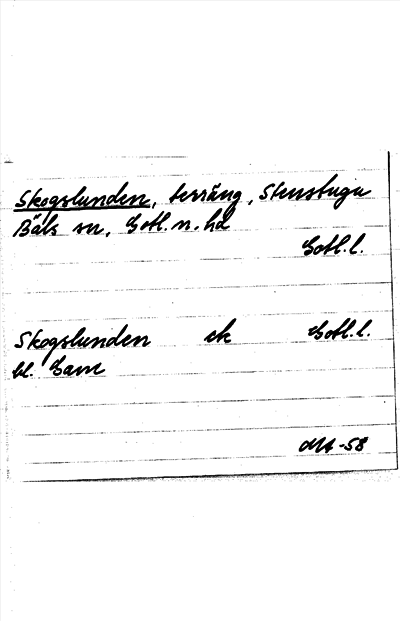 Skogslunden, terräng, Stenstugu
Bäls sn, Gotl. n. hd
Gotl. l.
Skogslunden ek Gotl. l.
bl. Garn
-58